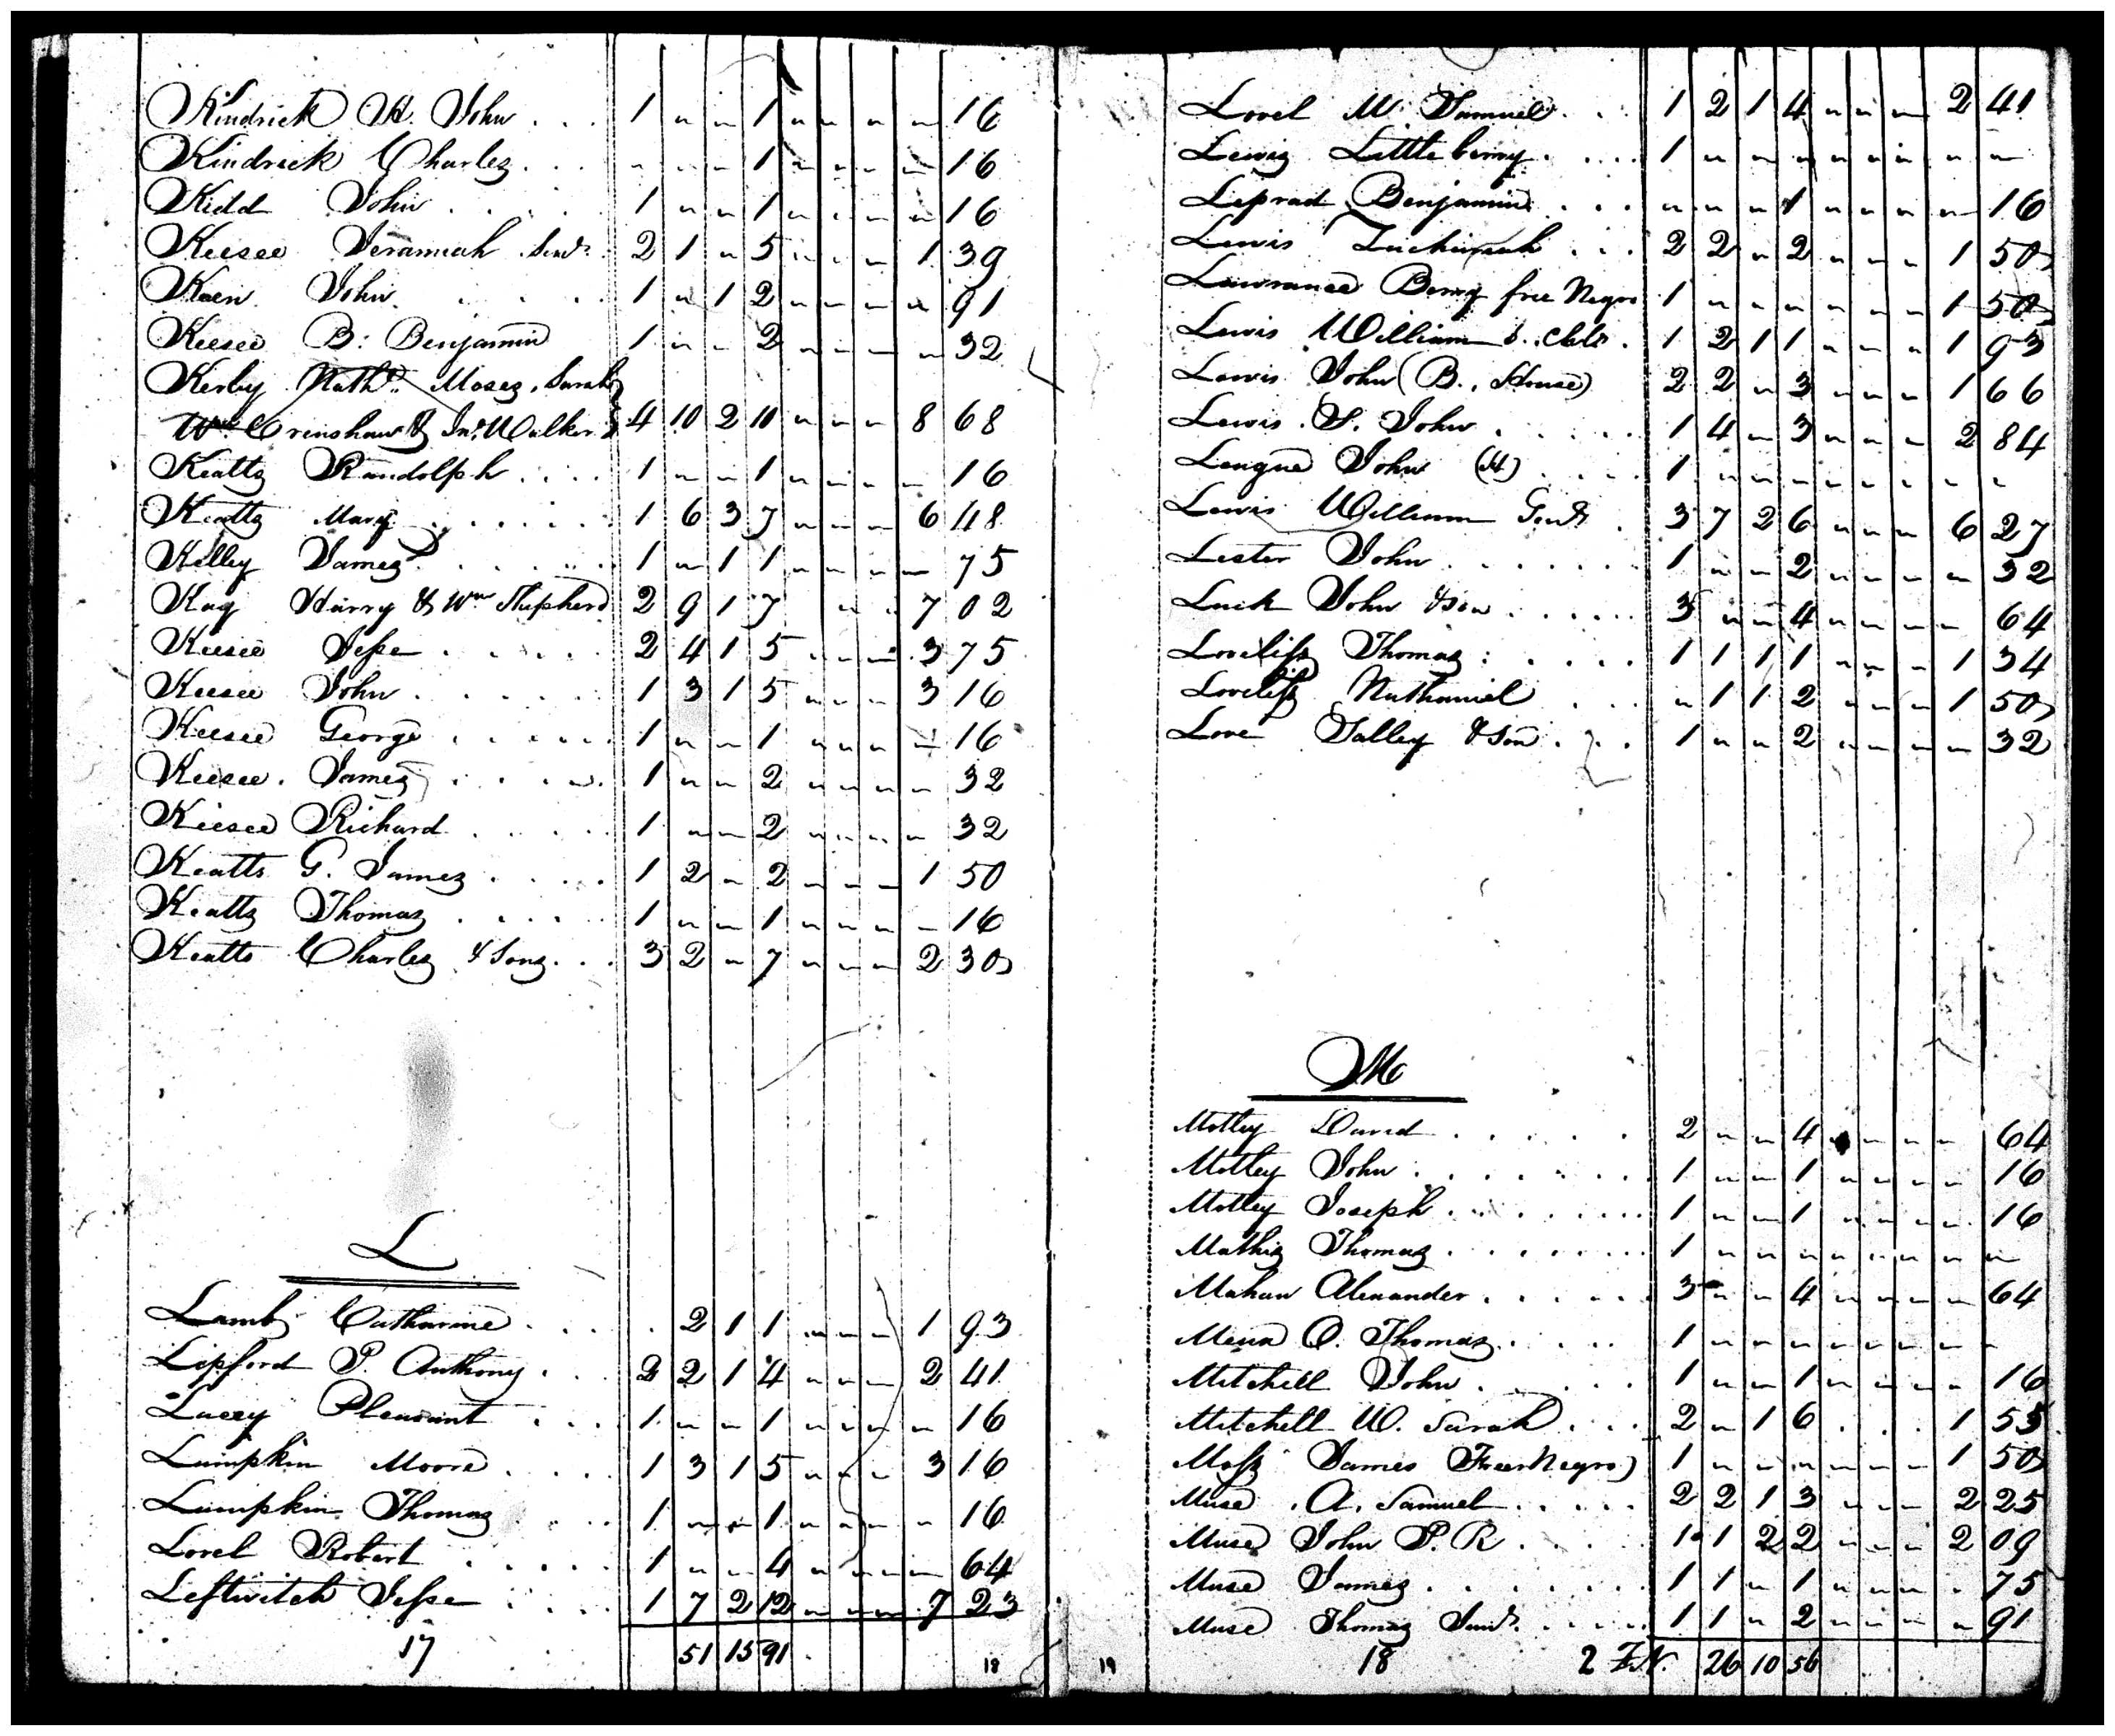 Kindrick H. John . . . 1 " " 1 " " " " 16
Kindrick Charles . . . " " " 1 " " " " 16
Kidd John . . . . 1 " " 1 " " " " 16
Keesee Jeramiah Senr. 2 1 " 5 " " " 1 39
Kaen John . . . . 1 " 1 2 " " " " 91
Keesee B: Benjamin 1 " " 2 " " " " 32
Kerby Nathl. Moses, Sarah
Wm. Crenshaw & Jno. Walker 4 10 2 10 " " " 8 68
Keatts Randolph . . . . 1 " " 1 " " " " 16
Keatts Mary . . . . . . 1 6 3 7 " " " 6 48
Kelley James . . . . . 1 " 1 1 " " " " 75
Kay Harry & Wm Shepherd 2 9 1 7 " " 7 02
Keesee Jesse . . . . . 2 4 1 5 " " " 3 75
Keesee John . . . . . . 1 3 1 5 " " " 3 16
Keesee George . . . . . 1 " " 1 " " " " 16
Keesee James . . . . 1 " " 2 " " " " 32
Keesee Richard . . . . 1 " " 2 " " " " 32
Keatts G. James . . . . 1 2 " 2 " " " 1 50
Keatts Thomas . . . . 1 " " 1 " " " " 16
Keatts Charles & Sons . . . 3 2 " 7 " " " 2 30
L
Lamb Catharine . . . . 2 1 1 " " " 1 93
Lipford P. Anthony . . . 2 2 1 4 " " " 2 41
Lacey Pleasant . . . . 1 " " 1 " " " " 16
Lumpkin Moore . . . . 1 3 1 5 " " " 3 16
Lumpkin Thomas . . . 1 " " 1 " " " " 16
Lovel Robert . . . . . 1 " " 4 " " " " 64
Leftwitch Jesse . . . . 1 7 2 12 " " " 7 23
17 51 15 91 18
Lovel W. Samuel . . . 1 2 1 4 " " " 2 41
Lewis Littleberry . . . . 1 " " " " " " " "
Leprad Benjamin . . . " " " 1 " " " " 16
Lewis Zachariah . . . 2 2 " 2 " " " 1 50
Lawrance Berry free Negro 1 " " " " " " 1 50
Lewis William . 1 2 1 1 " " " 1 93
Lewis John (B. House) 2 2 " 3 " " " 1 66
Lewis S. John . . . . . 1 4 " 3 " " " 2 84
League John (H) . . . . 1 " " " " " " " "
Lewis William Senr. 3 7 2 6 " " " 6 27
Lester John . . . . . . 1 " " 2 " " " " 32
Luck John & son . . . . . 3 " " 4 " " " " 64
Loveliss Thomas . . . . 1 1 1 1 " " " 1 34
Loveliss Nathaniel . . . " 1 1 2 " " " 1 50
Love Salley & Son . . . 1 " " 2 " " " " 32
M
Motley David . . . . . 2 " " 4 " " " " 64
Motley John . . . . . . 1 " " 1 " " " " 16
Motley Joseph . . . . . . 1 " " 1 " " " " 16
Mathis Thomas . . . . . . 1 " " " " " " " "
Mahan Alexander . . . . . 3 " " 4 " " " " 64
O. Thomas . . . . 1 " " " " " " " "
Mitchell John . . . . . 1 " " 1 " " " " 16
Mitchell W. Sarah . . . 2 " 1 6 . . . 1 55
Moss James Free Negro) 1 " " " " " " 1 50
Muse A. Samuel . . . . . 2 2 1 3 " " " 2 25
Muse John P. R . . . . . 1 1 2 2 " " " 2 09
Muse James . . . . . . 1 1 " 1 " " " " 75
Muse Thomas Junr. . . . . 1 1 " 2 " " " " 91
19 18 2 F.N. 26 10 56